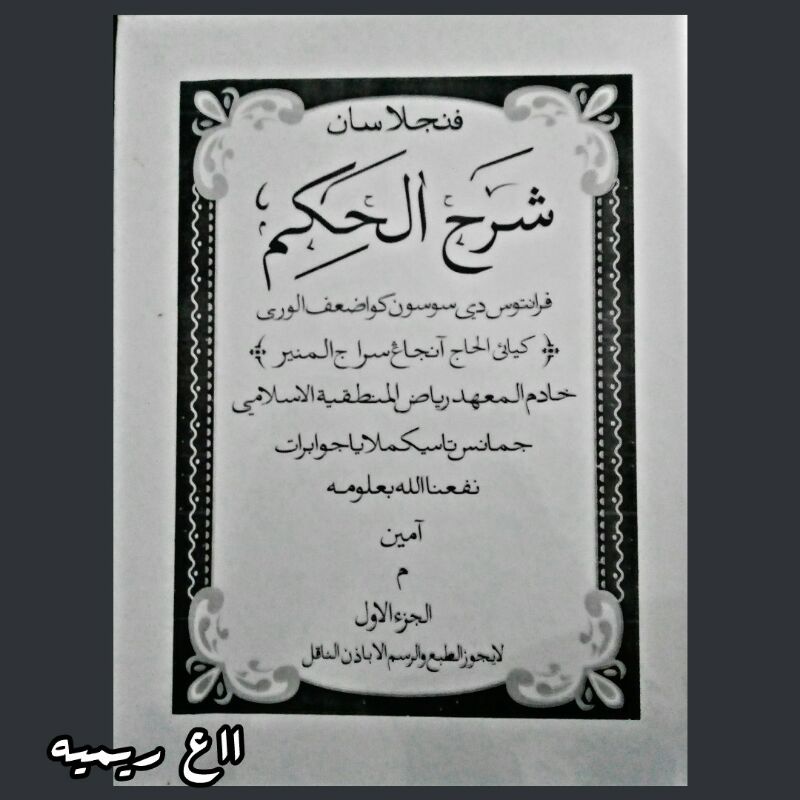 فنجلاسان
شرح الحكم
فرانتوس دي سوسون كو اضعف الورى
كيائي الحاج آنجاڠ سراج المنير
خادم المعهد رياض المنطقية الاسلامي
جمانس تاسيكملايا جوابرات
نفعنا الله بعلومه
آمين
م
الجزء الاول
لايجوز الطبع والرسم الا باذن الناقل
ااع ريميه